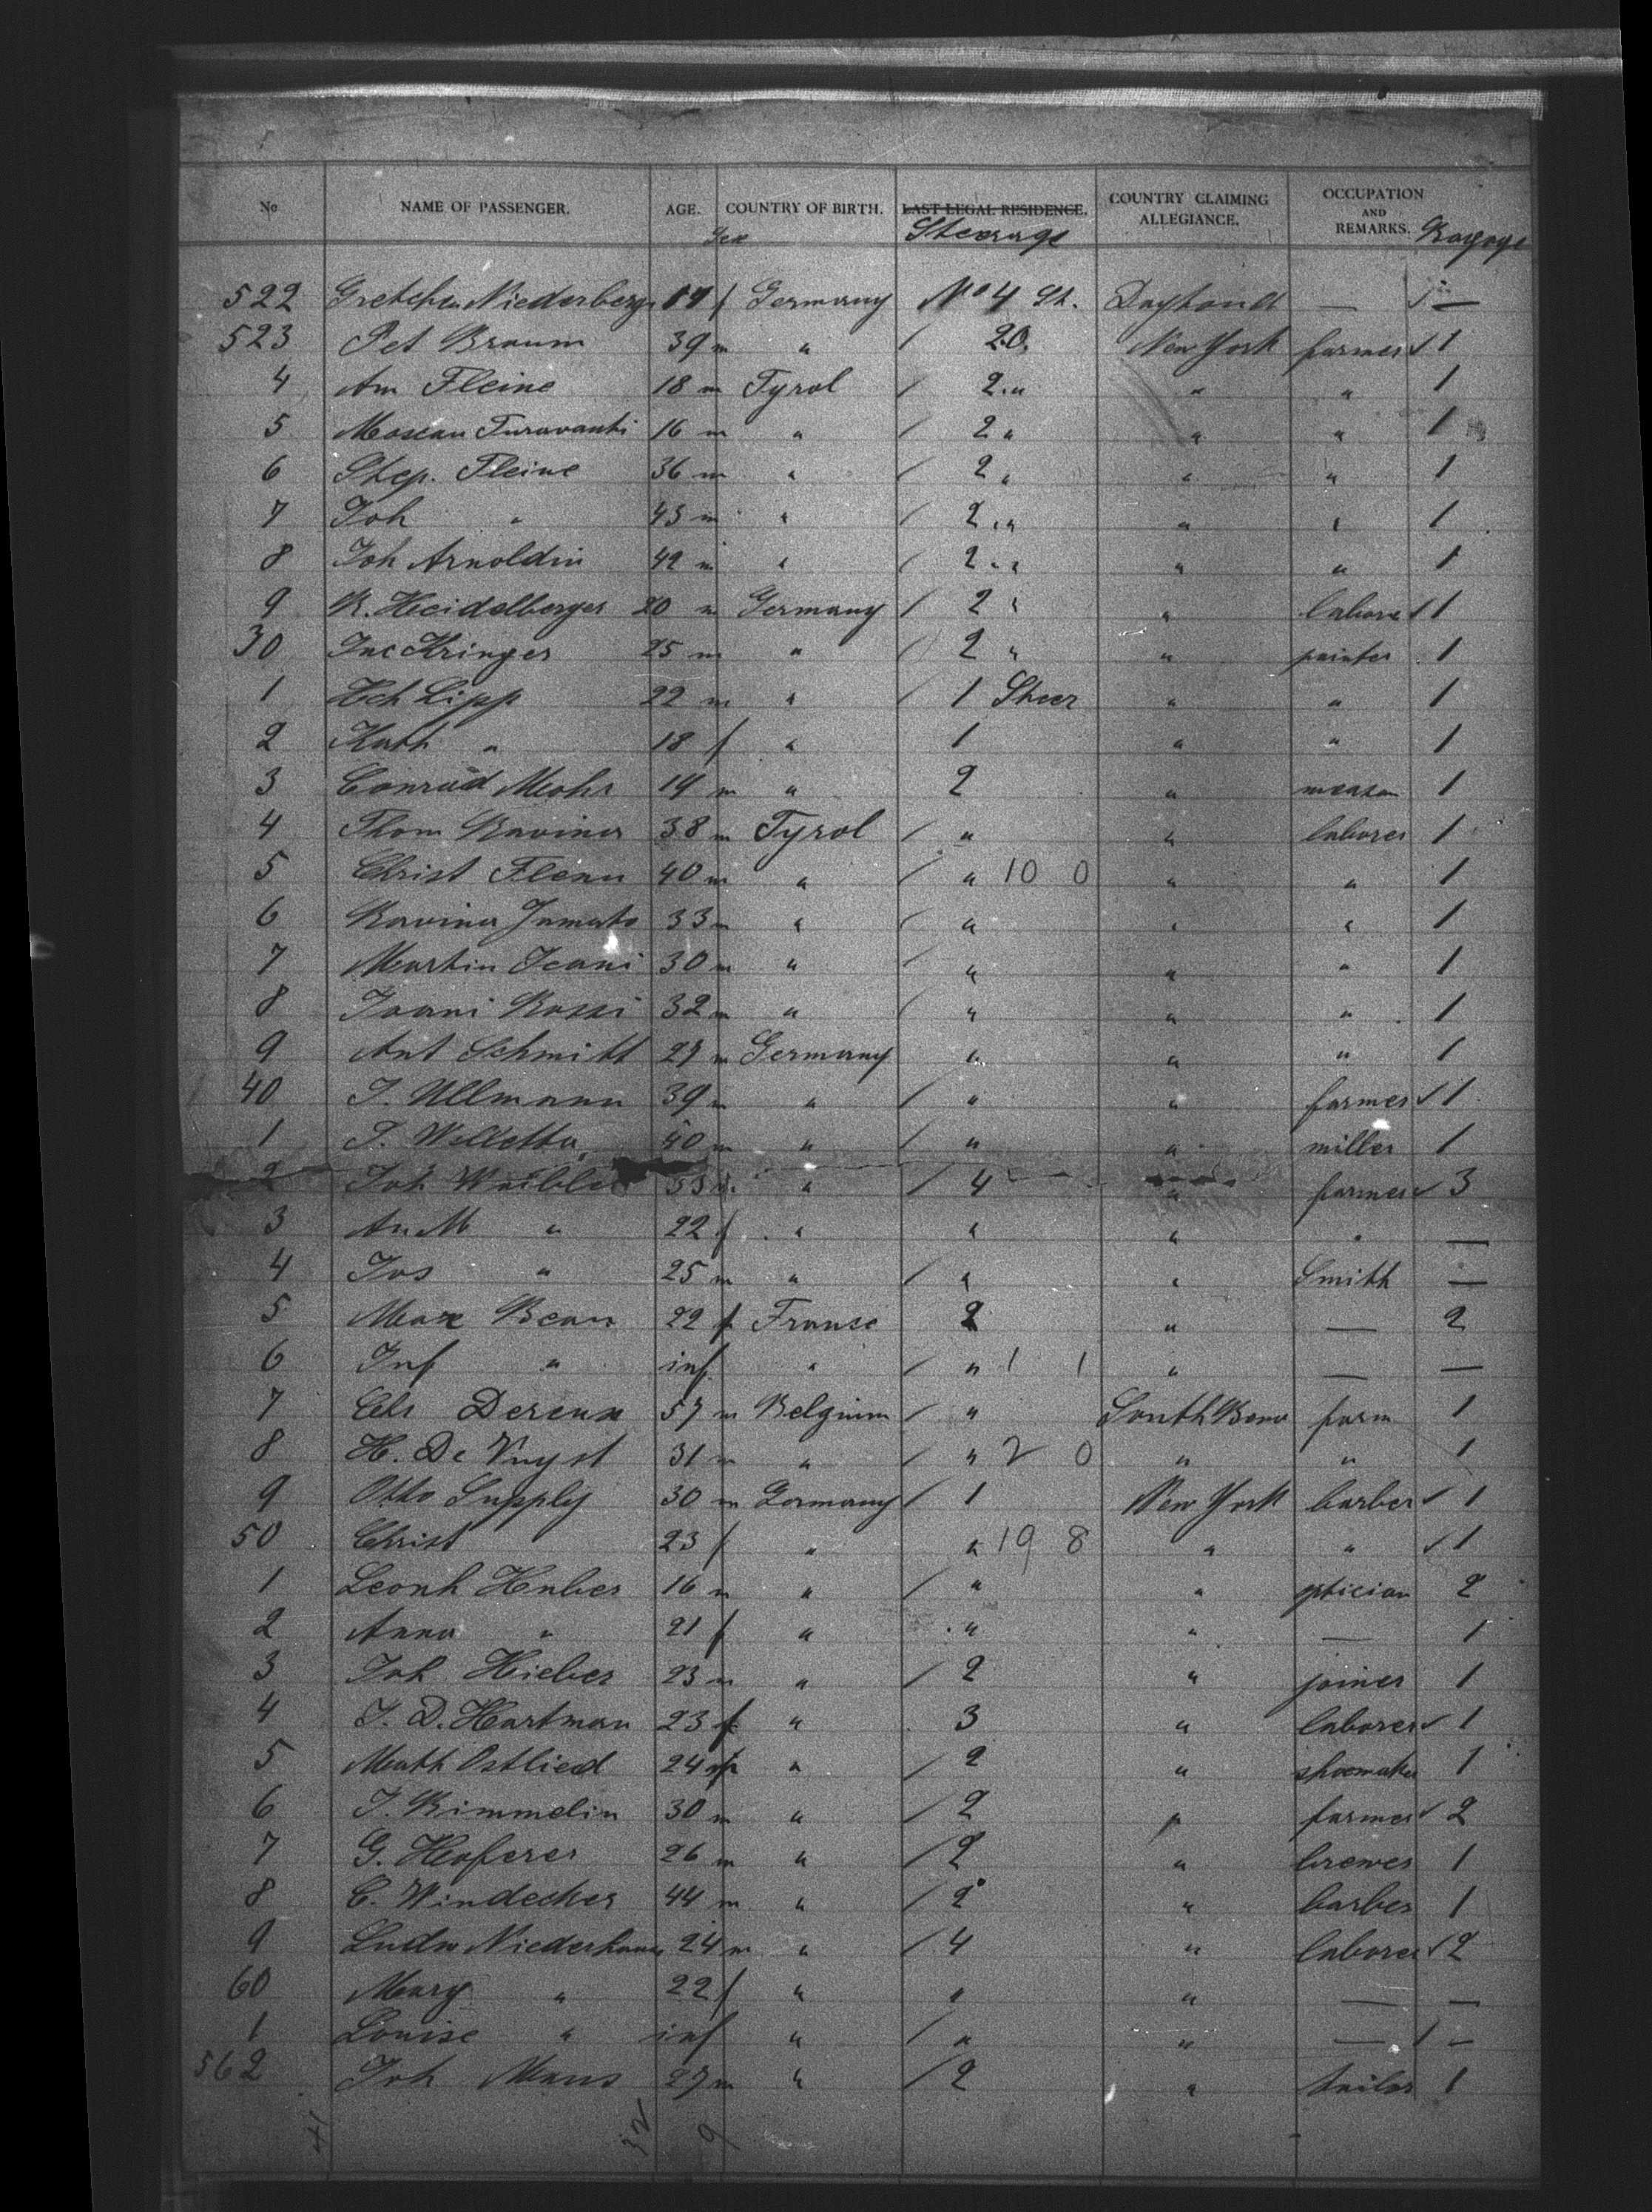 No NAME OF PASSENGER. AGE. COUNTRY OF BIRTH. LAST LEGAL RESIDENCE. COUNTRY CLAIMING ALLEGIANCE. OCCUPATION AND REMARKS.
Sex Steerage Bagage
522 Gretchen Niederberger f Germany No 4 St. — —
523 Pet Braum 39 m " / 20 New York farmer ✓ 1
4 An Fleine 18 m Tyrol / 2 " " " 1
5 16 m " / 2 " " " 1
6 Step. Fleine 36 m " / 2 " " " 1
7 Joh " 43 m " / 2 " " " 1
8 Joh Arnoldin 42 m " / 2 " " " 1
9 R. Heidelberger 20 m Germany / 2 " " labore ✓ 1
30 Kringer 25 m " / 2 " " painter 1
1 Hch Lipp 22 m " / 1 Steer " " 1
2 Kath " 18 f " 1 " " 1
3 Conrad Mohr 19 m " 2 " meason 1
4 Thom Ravina 38 m Tyrol / " " laborer 1
5 Christ Flenn 40 m " / " 10 0 " " 1
6 Ravina 33 m " / " " " 1
7 Martin Icani 30 m " / " " " 1
8 Joani Rossi 32 m " / " " " 1
9 Ant Schmitt 27 m Germany " " " 1
40 J. Ullmann 39 m " / " " farmer ✓ 1
1 40 m " / " " miller 1
2 Joh Waible 53 m " / 4 " farmer ✓ 3
3 An M " 22 f " " " " —
4 Jos " 25 m " / " " Smith —
5 Max Bean 22 f Franse 2 " — 2
6 Inf " inf " / " 1 1 " — —
7 Dereux 57 m Belgium / " South Bend farm 1
8 H. De Vuyst 31 m " / " 2 0 " " 1
9 Otto Supply 30 m Germany / 1 New York barber ✓ 1
50 Christ 23 f " " 19 8 " " ✓ 1
1 Leonh Huber 16 m " / " " optician 2
2 Anna " 21 f " " " — 1
3 Joh Hieber 23 m " / 2 " joiner 1
4 J. D. Hartman 23 f " 3 " laborer ✓ 1
5 Math Ostlied 24 " / 2 " shoemaker 1
6 J. Rimmelin 30 m " / 2 " farmer ✓ 2
7 G. Hoferer 26 m " / 2 " brewer 1
8 C. Windecker 44 m " / 2 " barber 1
9 Ludw Niederhaus 24 m " / 4 " laborer ✓ 2
60 Mary " 22 f " " " — —
1 Louise " inf " / " " — / —
562 Joh Maus 27 m " / 2 " tailor 1
41 32 9